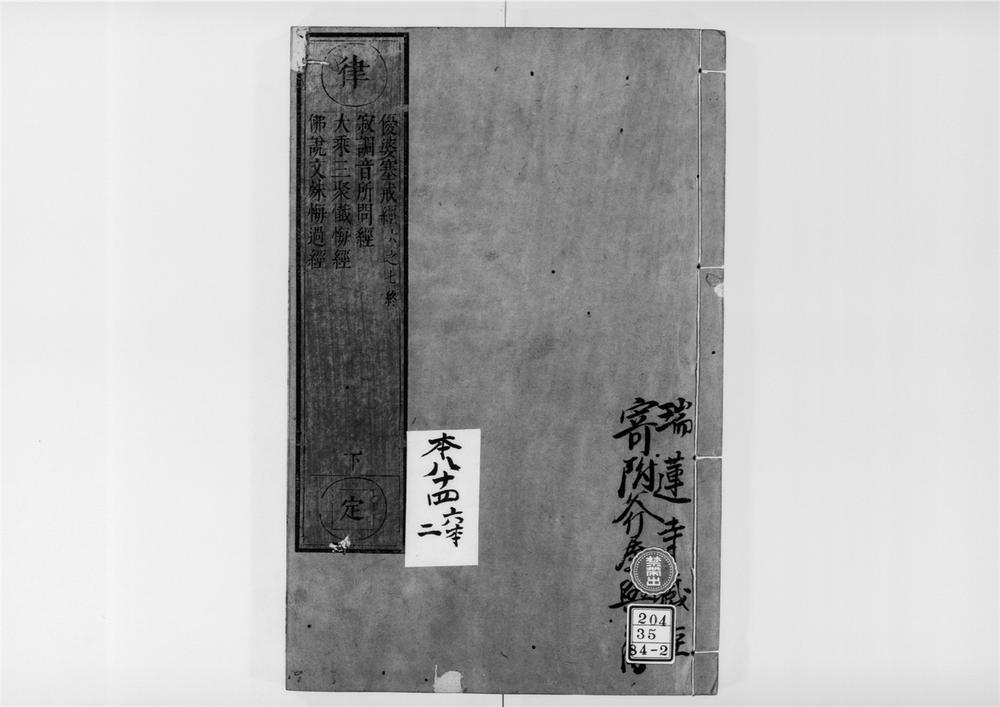 瑞蓮寺藏経
寄附
禁帶出
204
35
84-2
律
優婆塞戒經六之七終
寂調音所問經
大乘三聚懺悔經
佛說文殊悔過經
下
定
本八十四
六本
二